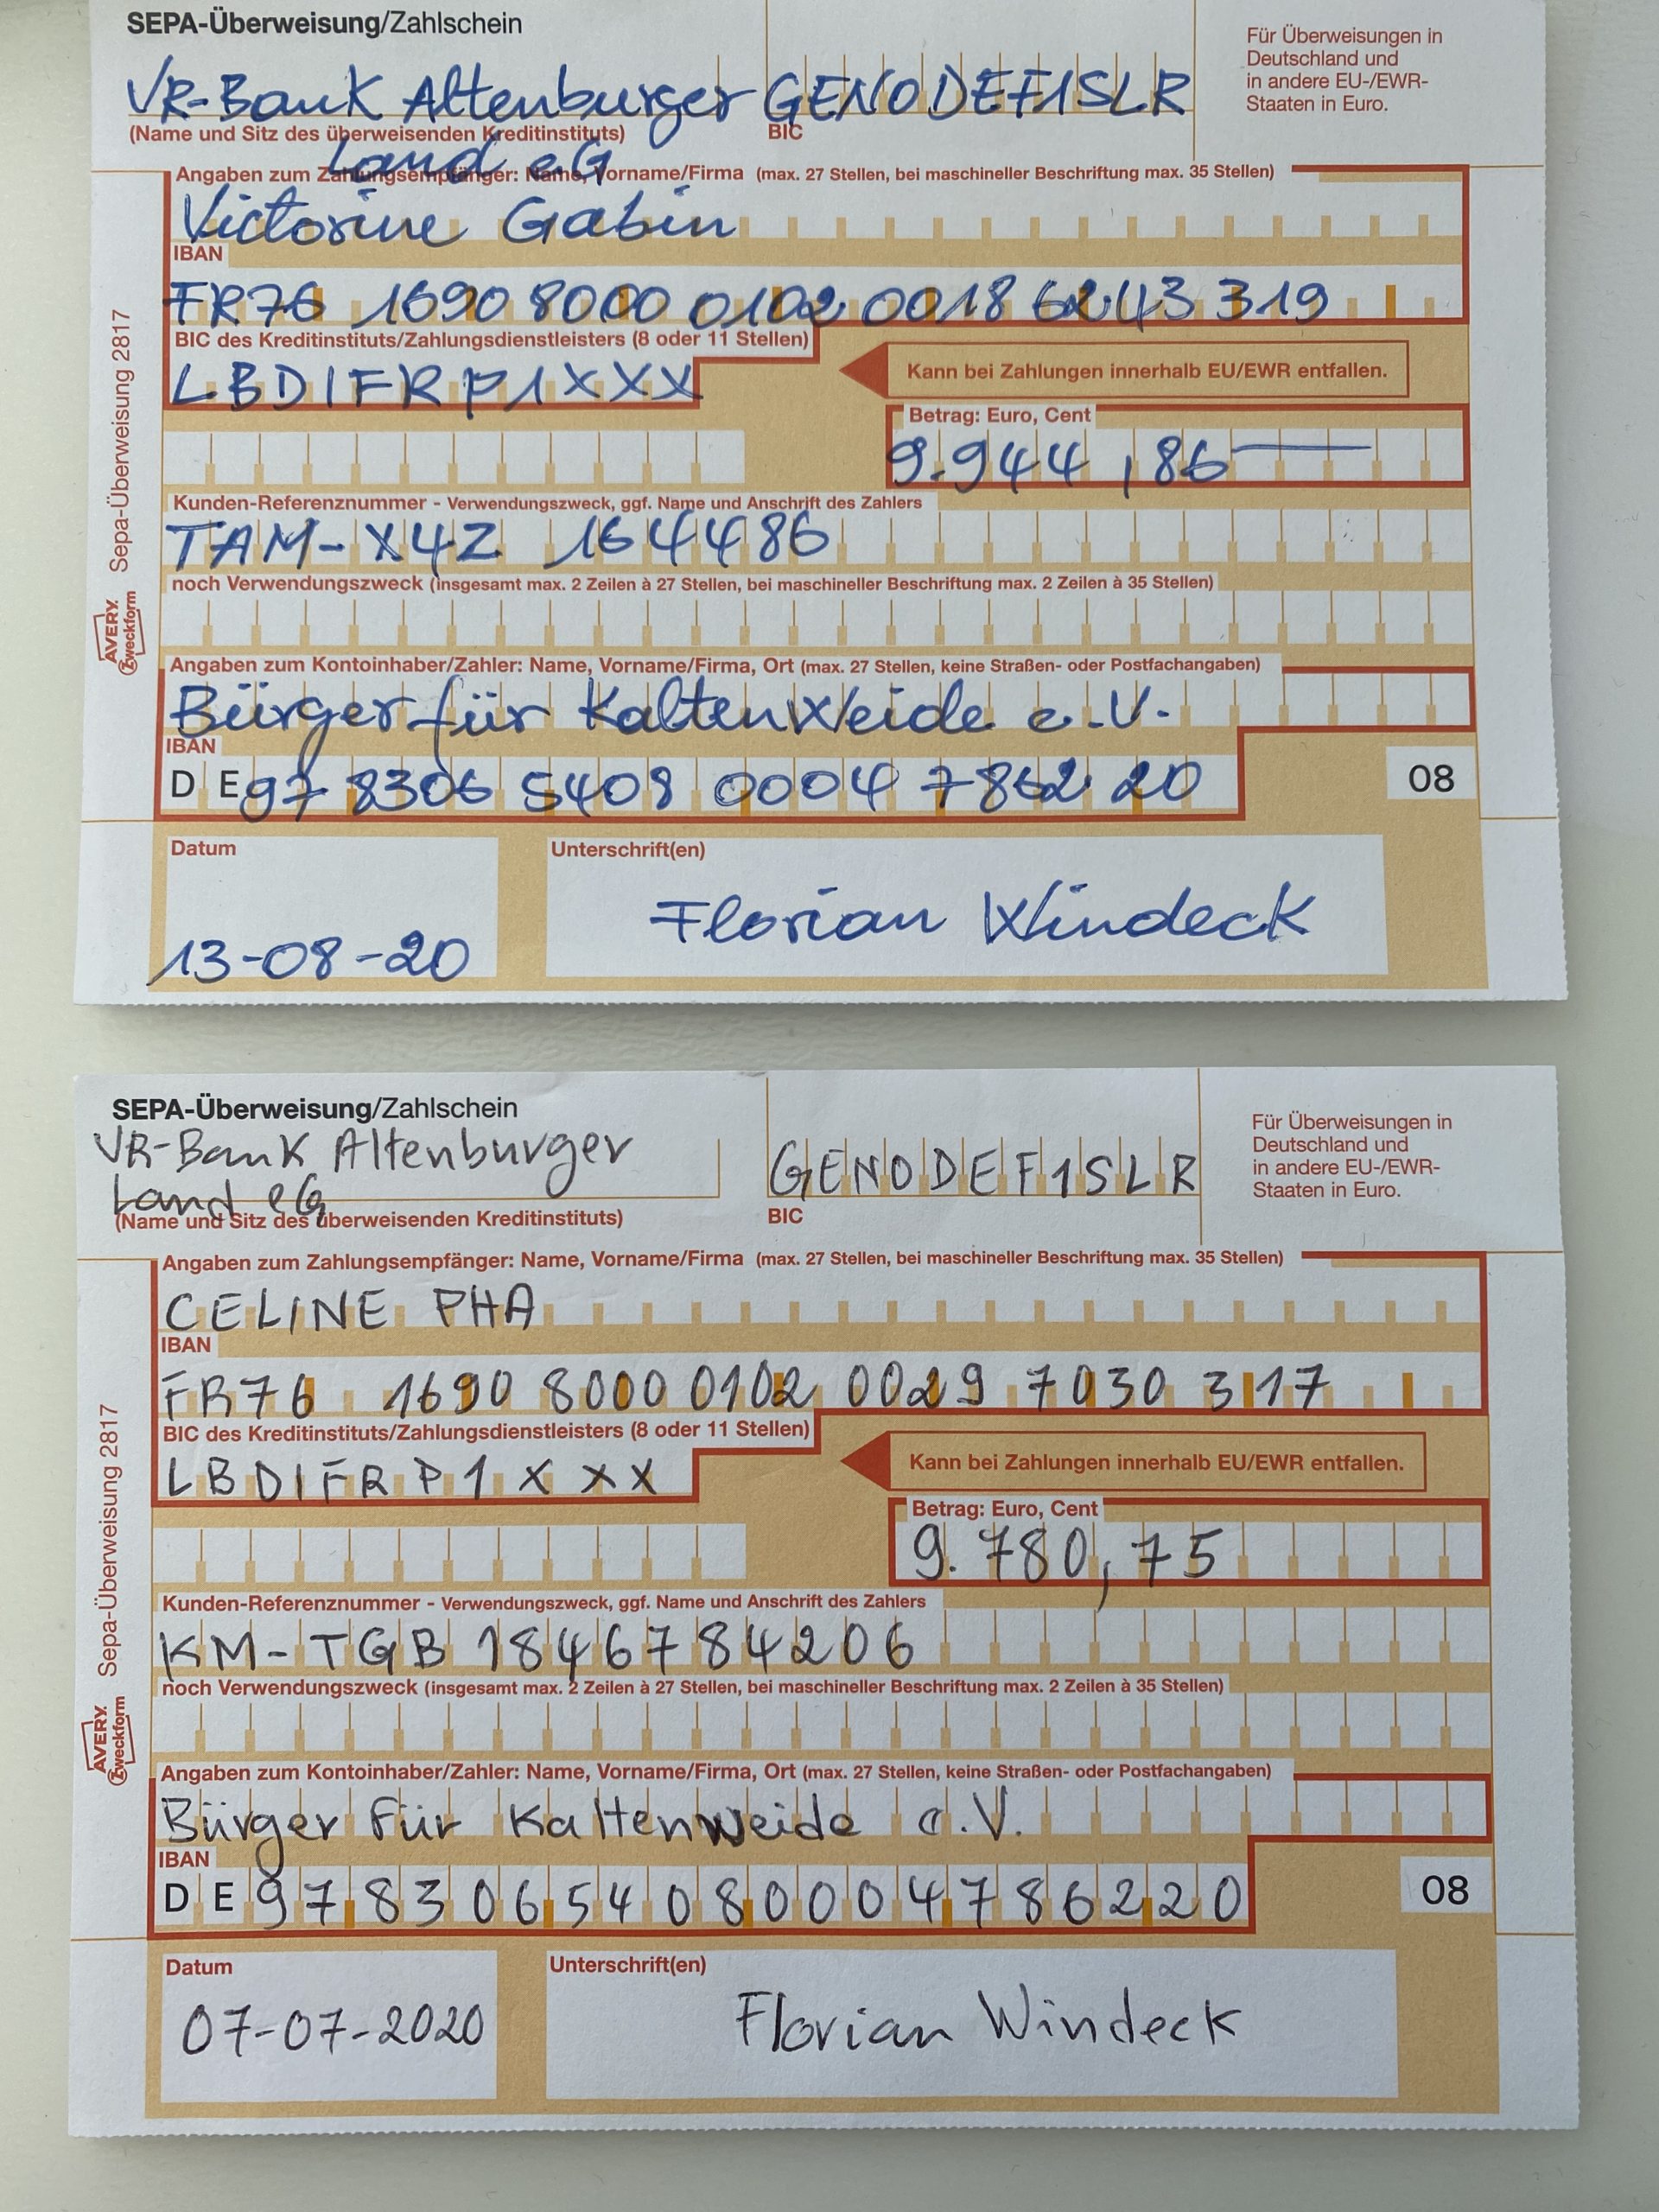 SEPA-Überweisung/Zahlschein
Für Überweisungen in
Deutschland und
in andere EU-/EWR-
Staaten in Euro.
VR-Bank Altenburger GENODEF1SLR
(Name und Sitz des überweisenden Kreditinstituts) BIC
Land eG
Angaben zum Zahlungsempfänger: Name, Vorname/Firma (max. 27 Stellen, bei maschineller Beschriftung max. 35 Stellen)
Victorine Gabin
IBAN
FR76 1690 8000 0102 0018 6243 319
BIC des Kreditinstituts/Zahlungsdienstleisters (8 oder 11 Stellen)
LBDIFRP1XXX
Kann bei Zahlungen innerhalb EU/EWR entfallen.
Betrag: Euro, Cent
9.944,86
Kunden-Referenznummer - Verwendungszweck, ggf. Name und Anschrift des Zahlers
TAM-X4Z 1644486
noch Verwendungszweck (insgesamt max. 2 Zeilen à 27 Stellen, bei maschineller Beschriftung max. 2 Zeilen à 35 Stellen)
Angaben zum Kontoinhaber/Zahler: Name, Vorname/Firma, Ort (max. 27 Stellen, keine Straßen- oder Postfachangaben)
Bürger für Kaltenweide e.V.
IBAN
DE97 8306 5408 0004 7862 20
08
Datum
Unterschrift(en)
13-08-20
Florian Windeck
Sepa-Überweisung 2817
AVERY
Zweckform
SEPA-Überweisung/Zahlschein
Für Überweisungen in
Deutschland und
in andere EU-/EWR-
Staaten in Euro.
VR-Bank Altenburger
Land eG
GENODEF1SLR
(Name und Sitz des überweisenden Kreditinstituts) BIC
Angaben zum Zahlungsempfänger: Name, Vorname/Firma (max. 27 Stellen, bei maschineller Beschriftung max. 35 Stellen)
CELINE PHA
IBAN
FR76 1690 8000 0102 0029 7030 317
BIC des Kreditinstituts/Zahlungsdienstleisters (8 oder 11 Stellen)
LBDIFRP1XXX
Kann bei Zahlungen innerhalb EU/EWR entfallen.
Betrag: Euro, Cent
9.780,75
Kunden-Referenznummer - Verwendungszweck, ggf. Name und Anschrift des Zahlers
KM-TGB 1846784206
noch Verwendungszweck (insgesamt max. 2 Zeilen à 27 Stellen, bei maschineller Beschriftung max. 2 Zeilen à 35 Stellen)
Angaben zum Kontoinhaber/Zahler: Name, Vorname/Firma, Ort (max. 27 Stellen, keine Straßen- oder Postfachangaben)
Bürger für Kaltenweide e.V.
IBAN
DE97830654080004786220
08
Datum
Unterschrift(en)
07-07-2020
Florian Windeck
Sepa-Überweisung 2817
AVERY
Zweckform